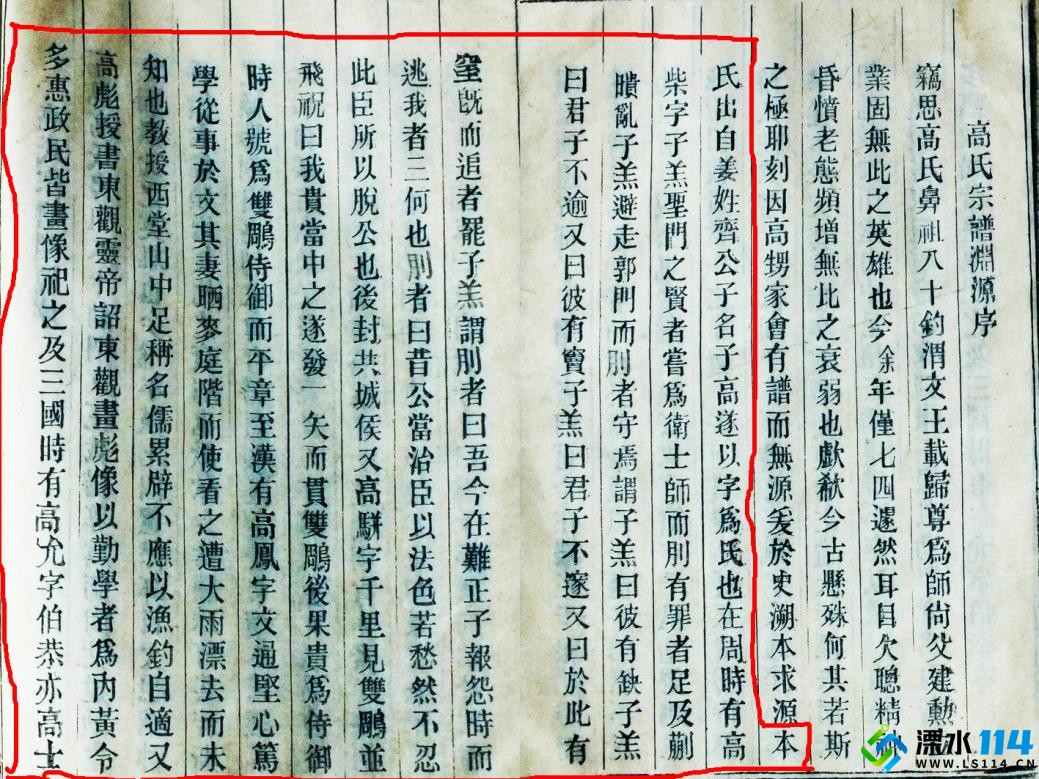 高氏宗譜淵源序
竊思高氏鼻祖八十釣渭文王載歸尊爲師尙父建勳
業固無此之英雄也今余年僅七四遽然耳目欠聰精神
昏憒老態頻增無比之衰弱也歔欷今古懸殊何其若斯
之極耶刻因高甥家會有譜而無源爰於史溯本求源本
氏出自姜姓齊公子名子高遂以字爲氏也在周時有高
柴字子羔聖門之賢者嘗爲衛士師而刖有罪者足及蒯
聵亂子羔避走郭門而刖者守焉謂子羔曰彼有缺子羔
曰君子不逾又曰彼有竇子羔曰君子不遂又曰於此有
室既而追者罷子羔謂刖者曰吾今在難正子報怨時而
逃我者三何也刖者曰昔公當治臣以法色若愁然不忍
此臣所以脫公也後封共城侯又高駢字千里見雙鵰並
飛祝曰我貴當中之遂發一矢而貫雙鵰後果貴爲侍御
時人號爲雙鵰侍御而平章至漢有高鳳字文通堅心篤
學從事於文其妻晒麥庭階而使看之遭大雨漂去而未
知也教授西堂山中足稱名儒累辟不應以漁釣自適又
高彪授書東觀靈帝詔東觀畫彪像以勤學者爲內黃令
多惠政民皆畫像祀之及三國時有高允字伯恭亦高士
溧水114
WWW.LS114.CN